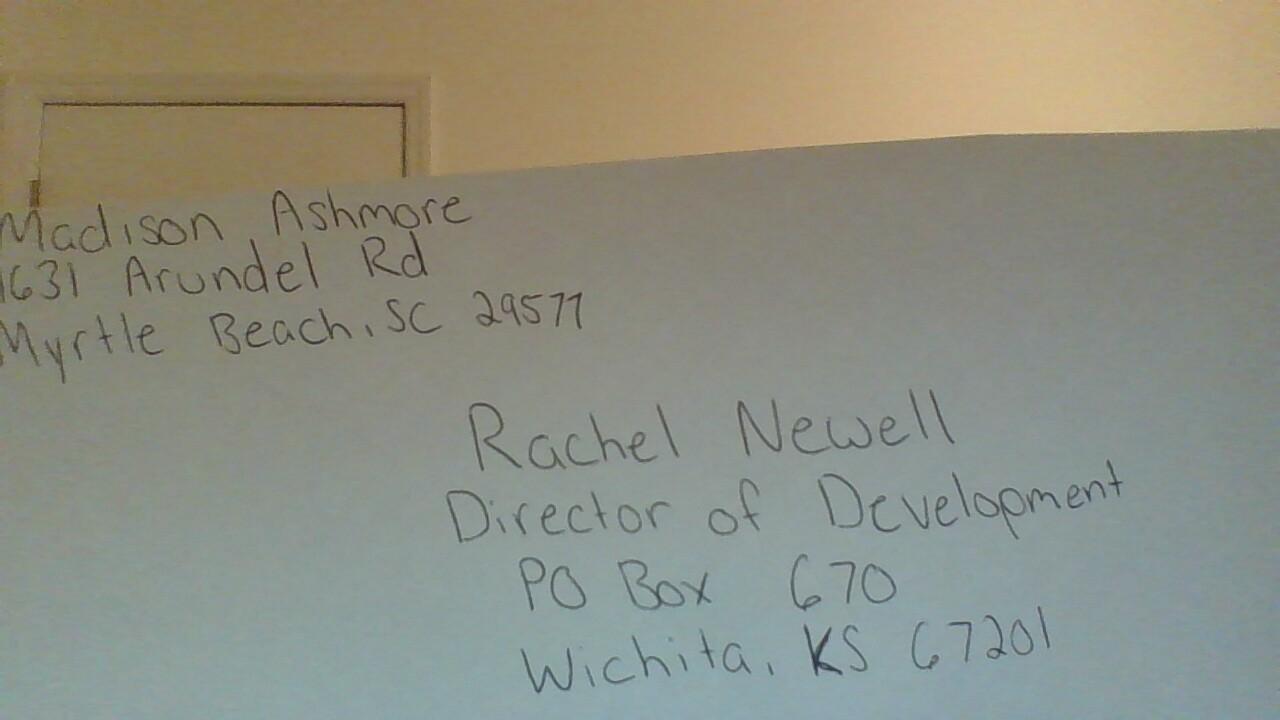 Madison Ashmore
1631 Arundel Rd
Myrtle Beach, SC 29577
Rachel Newell
Director of Development
PO Box 670
Wichita, KS 67201